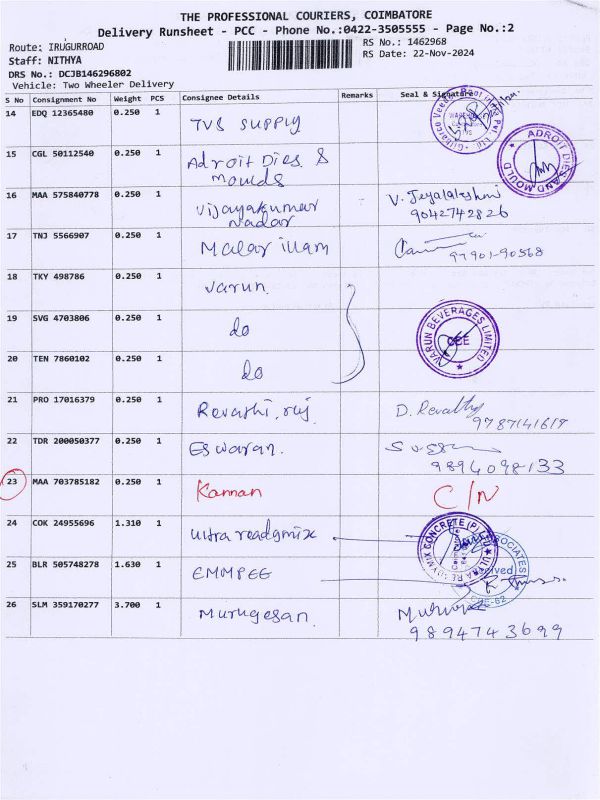 THE PROFESSIONAL COURIERS, COIMBATORE
Delivery Runsheet - PCC - Phone No.:0422-3505555 - Page No.:2
Route: IRUGURROAD
RS No.: 1462968
Staff: NITHYA
RS Date: 22-Nov-2024
DRS No.: DCJB146296802
Vehicle: Two Wheeler Delivery
S No Consignment No Weight PCS Consignee Details Remarks Seal & Signature
14 EDQ 12365480 0.250 1 TVS SUPPLY
15 CGL 50112540 0.250 1 Adroit Dies &
Moulds
ADROIT DIES AND MOULD
16 MAA 575840778 0.250 1 Vijayakumar
Nadar
V. Jeyalakshmi
9042742826
17 TNJ 5566907 0.250 1 Malar illam
97901-90568
18 TKY 498786 0.250 1 Varun
19 SVG 4703806 0.250 1 do
VARUN BEVERAGES LIMITED
CBE
20 TEN 7860102 0.250 1 do
21 PRO 17016379 0.250 1 Revathi, raj
D. Revathy
9787141617
22 TDR 200050377 0.250 1 Eswaran.
9894098133
23 MAA 703785182 0.250 1 Kannan C/N
24 COK 24955696 1.310 1 ultra readymix
CONCRETE (P)
25 BLR 505748278 1.630 1 EMMPEE
26 SLM 359170277 3.700 1 Murugesan
9894743699